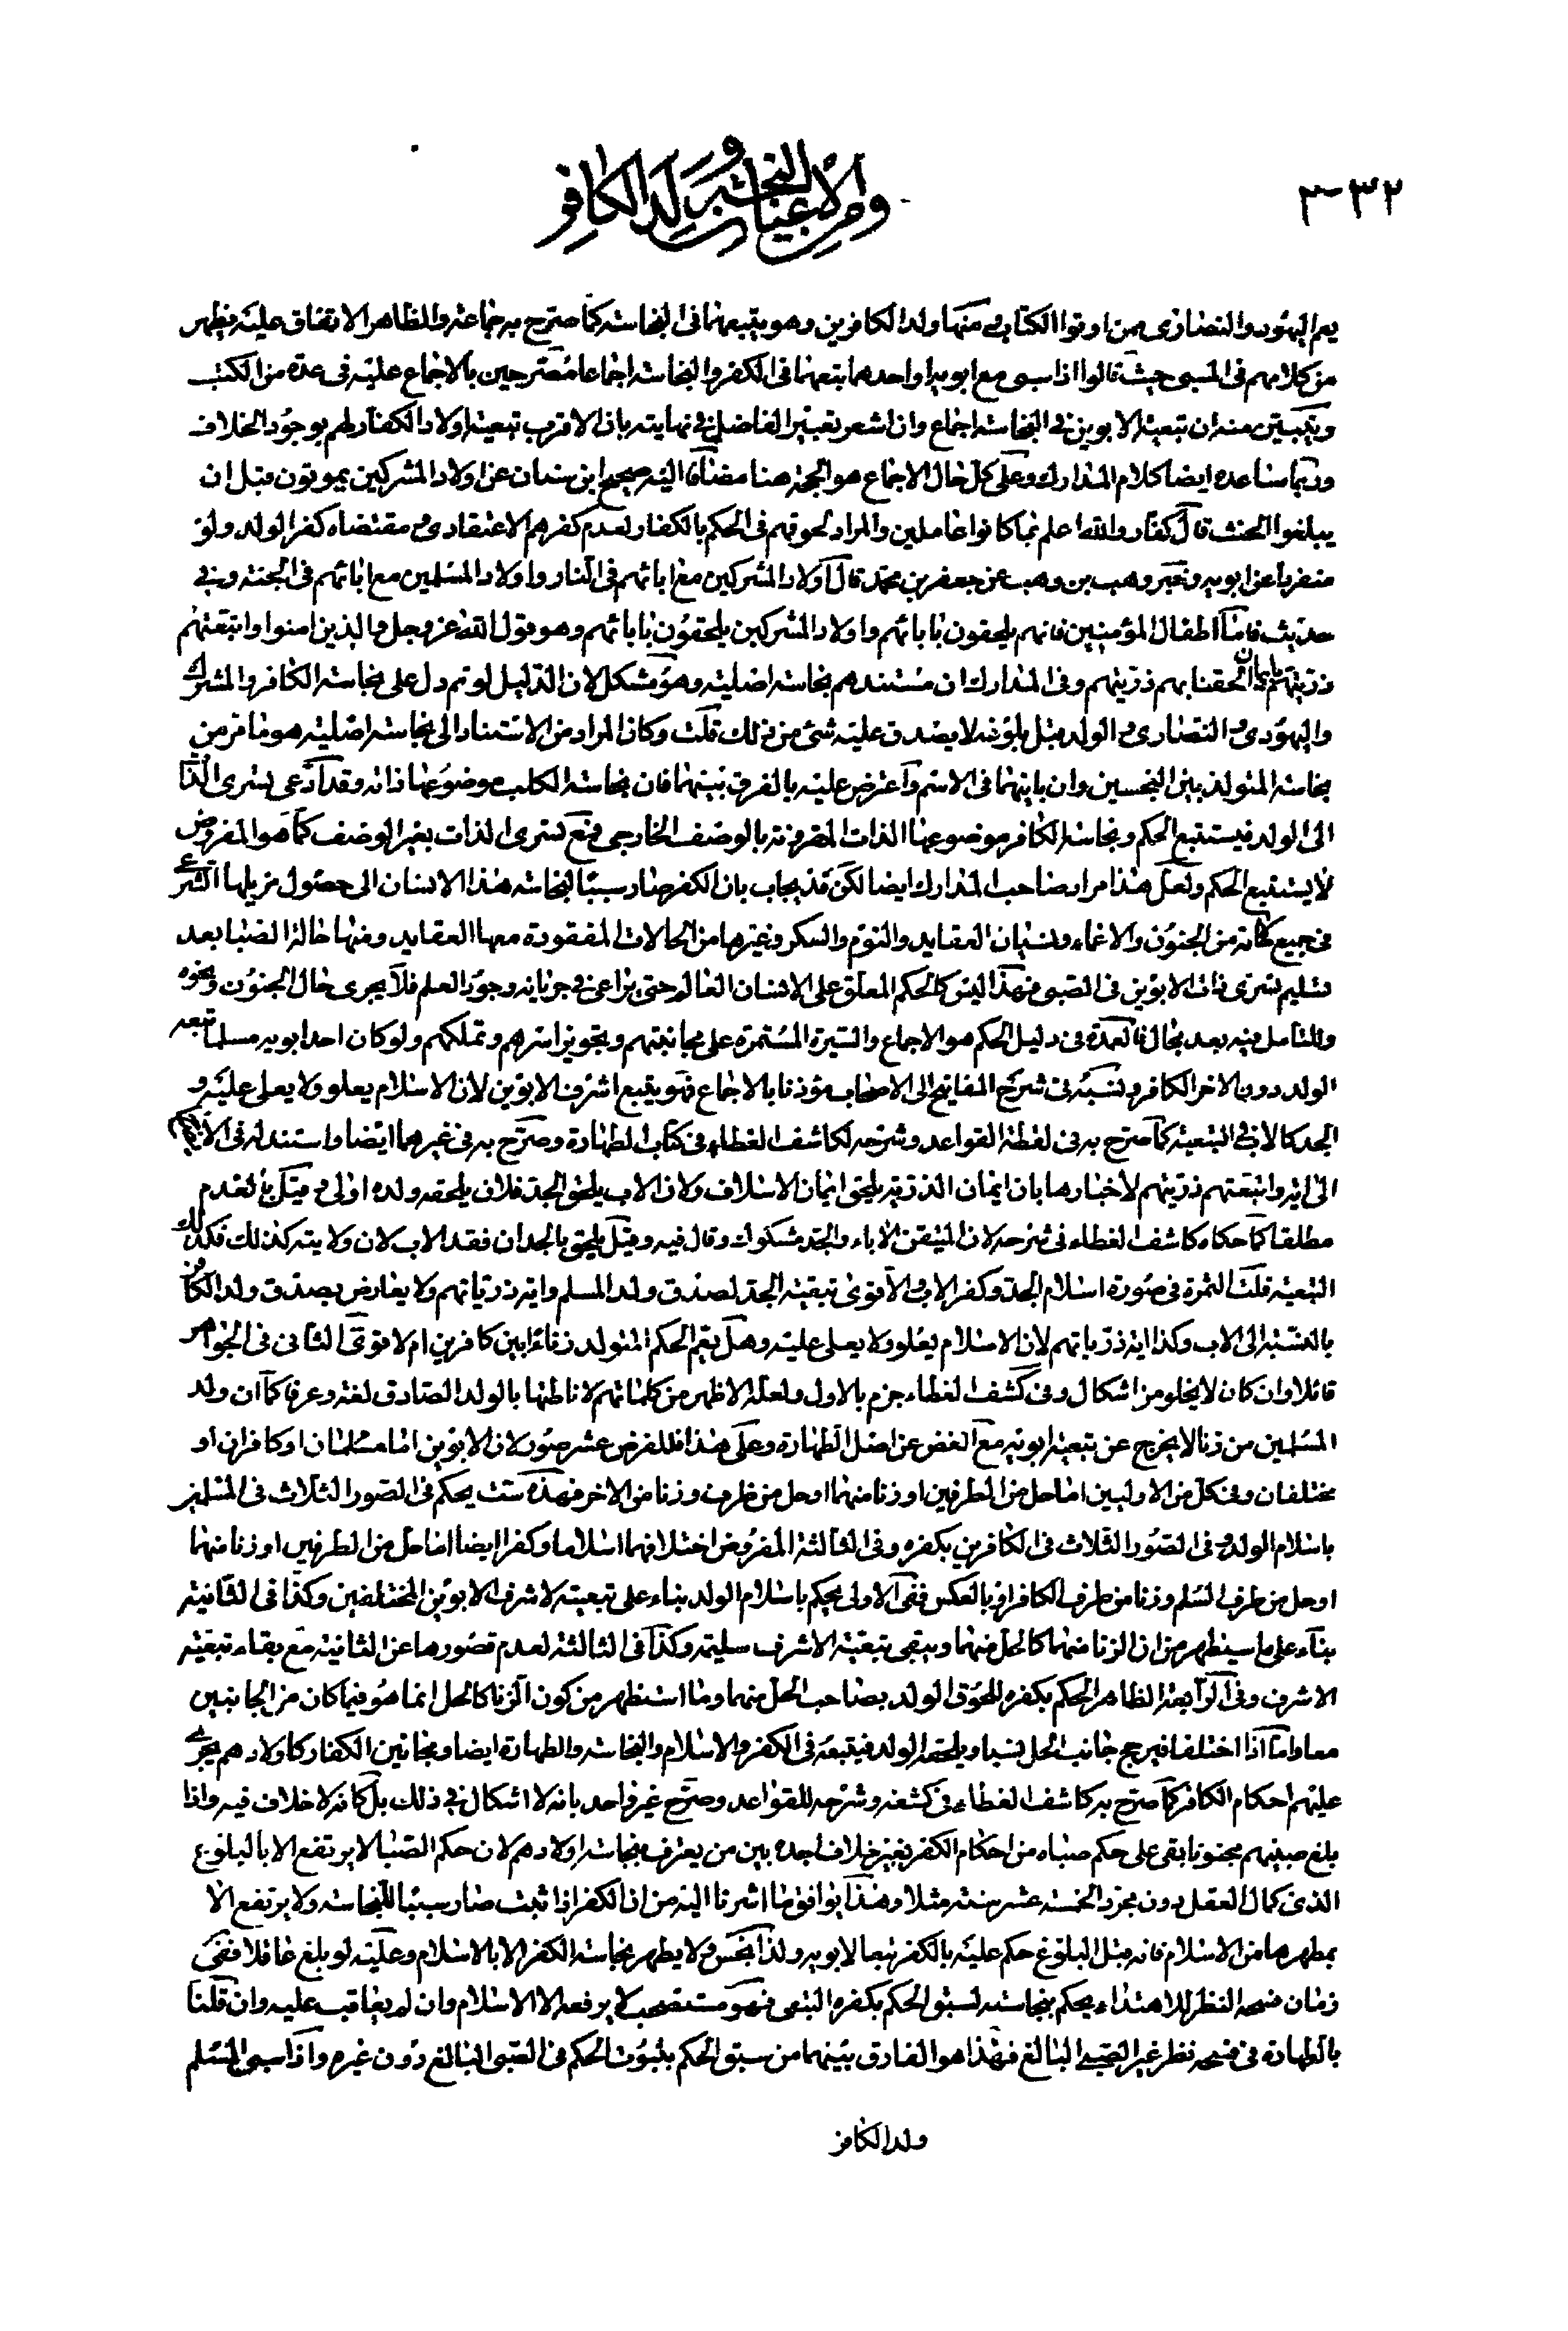 ٣٢-٣
ومن الاعيان النجسة ولد الكافر
يعم اليهود والنصارى ممن اوتوا الكتاب ومنها ولد الكافرين وهو يتبعهما فى النجاسة كما صرح به جماعة والظاهر الاتفاق عليه ويظهر
من كلامهم فى المسبى حيث قالوا اذا سبى مع ابويه او احدهما يتبعهما فى الكفر والنجاسة اجماعا مصرحين بالاجماع عليه فى عدة من الكتب
ويتبين منه ان تبعية الابوين في النجاسة اجماع وان اشعر تعبير الفاضل في نهايته بان الاقرب تبعية اولاد الكفار لهم بوجود الخلاف
وربما ساعده ايضا كلام المدارك وعلى كل حال الاجماع هو الحجة هنا مضافا اليه صحيح ابن سنان عن اولاد المشركين يموتون قبل ان
يبلغوا الحنث قال كفار والله اعلم بما كانوا عاملين والمراد لحوقهم فى الحكم بالكفار لعدم كفرهم الاعتقادى ومقتضاه كفر الولد ولو
منفردا عن ابويه وخبر وهب بن وهب عن جعفر بن محمد قال اولاد المشركين مع ابائهم فى النار واولاد المسلمين مع ابائهم فى الجنة وفي
حديث فاما اطفال المؤمنين فانهم يلحقون بابائهم واولاد المشركين يلحقون بابائهم وهو قول الله عز وجل والذين امنوا واتبعتهم
ذريتهم بايمان الحقنا بهم ذريتهم وفى المدارك ان مستندهم نجاسة اصلية وهو مشكل لان الدليل لو تم دل على نجاسة الكافر والمشرك
واليهودى والنصارى والولد قبل بلوغه لا يصدق عليه شئ من ذلك قلت وكان المراد من الاستناد الى نجاسة اصلية هو ما مر من
نجاسة المتولد بين النجسين وان باينهما فى الاسم واعترض عليه بالفرق بينهما فان نجاسة الكلب موضوعها ذاته وقد ادعى تسرى الذات
الى الولد فيستتبع الحكم ونجاسة الكافر موضوعها الذات المقرونة بالوصف الخارجى فمع تسرى الذات بغير الوصف كما هو المفروض
لا يستتبع الحكم ولعل هذا مراد صاحب المدارك ايضا لكن قد يجاب بان الكفر صار سببا لنجاسة هذا الانسان الى حصول مزيلها الشرعى
فى جميع حالاته من الجنون والاغماء ونسيان العقايد والنوم والسكر وغيرها من الحالات المفقودة معها العقايد ومنها حالة الصبا بعد
تسليم تسرى ذات الابوين فى الصبى فهذا ليس كالحكم المعلق على الانسان العالم حتى يراعى في جريانه وجود العلم فلا يجرى حال الجنون ونحوه
وللتأمل فيه بعد مجال فالعمدة فى دليل الحكم هو الاجماع والسيرة المستمرة على مجانبتهم وتجويز اسرهم وتملكهم ولو كان احد ابويه مسلما تبعه
الولد دون الاخر الكافر ونسبه فى شرح المفاتيح الى الاصحاب مؤذنا بالاجماع فهو يتبع اشرف الابوين لان الاسلام يعلو ولا يعلى عليه و
الجد كالاب في التبعية كما صرح به فى لقطة القواعد وشرحه لكاشف الغطاء فى كتاب الطهارة وصرح به فى غيرهما ايضا واستند له فى
الى اية واتبعتهم ذريتهم لاخبارها بان ايمان الذرية يلحق ايمان الاسلاف ولان الاب يلحق الجد فلان يلحقه ولده اولى وقيل بالعدم
مطلقا كما حكاه كاشف الغطاء فى شرحه لان المتيقن الاباء والجد مشكوك وقال فيه وقيل يلحق بالجد ان فقد الاب لان ولايته كذلك فكذلك
التبعية قلت الثمرة فى صورة اسلام الجد وكفر الاب والاقوى تبعية الجد لصدق ولد المسلم واية ذرياتهم ولا يعارض بصدق ولد الكافر
بالنسبة الى الاب وكذا اية ذرياتهم لان الاسلام يعلو ولا يعلى عليه وهل يعم الحكم المتولد زناءا بين كافرين ام لا قوى الثانى فى الجواهر
قائلا وان كان لا يخلو من اشكال وفى كشف الغطاء جزم بالاول ولعله الاظهر من كلماتهم لاناطتها بالولد الصادق لغة وعرفا كما ان ولد
المسلمين من زنا لا يخرج عن تبعية ابويه مع الغض عن اصل الطهارة وعلى هذا فللفرض عشر صور لان الابوين اما مسلمان او كافران او
مختلفان وفى كل من الاوليين اما حل من الطرفين او زنا منهما او حل من طرف وزنا من الاخر فهذه ست يحكم فى الصور الثلاث فى المسلمين
باسلام الولد وفى الصور الثلاث فى الكافرين بكفره وفى الثالثة المفروض اختلافهما اسلاما وكفرا ايضا اما حل من الطرفين او زنا منهما
او حل من طرف المسلم وزنا من طرف الكافر او بالعكس ففى الاولى يحكم باسلام الولد بناء على تبعيته لاشرف الابوين المختلفين وكذا فى الثانية
بناء على ما سيظهر من ان الزنا منهما كالحل منهما ويبقى تبعية الاشرف سليمة وكذا فى الثالثة لعدم قصورها عن الثانية مع بقاء تبعية
الاشرف وفى الرابعة الظاهر الحكم بكفره للحوق الولد بصاحب الحل منهما وما استظهر من كون الزنا كالحل انما هو فيما كان من الجانبين
معا واما اذا اختلفا فيرجح جانب الحل نسبا ويلحقه الولد فيتبعه فى الكفر والاسلام والنجاسة والطهارة ايضا ومجانين الكفار كاولادهم يجرى
عليهم احكام الكافر كما صرح به كاشف الغطاء فى كشفه وشرحه للقواعد وصرح غير واحد بانه لا اشكال في ذلك بل كانه لا خلاف فيه واذا
بلغ صبيهم مجنونا بقى على حكم صباه من احكام الكفر بغير خلاف اجده بين من يعترف بنجاسة اولادهم لان حكم الصبا لا يرتفع الا بالبلوغ
الذى كمال العقل دون مجرد الخمسة عشر سنة مثلا وهذا يوافق ما اشرنا اليه من ان الكفر اذا ثبت صار سببا للنجاسة ولا يرتفع الا
بمطهرها من الاسلام فانه قبل البلوغ حكم عليه بالكفر تبعا لابويه ولذا نجس ولا يطهر نجاسة الكفر الا بالاسلام وعليه لو بلغ عاقلا ففى
زمان فسحة النظر للاهتداء يحكم بنجاسته لسبق الحكم بكفره التبعى فهو مستصحب لا يرفعه الا الاسلام وان لم يعاقب عليه وان قلنا
بالطهارة فى فسحة نظر غير الصبى البالغ فهذا هو الفارق بينهما من سبق الحكم بثبوت الحكم فى الصبى البالغ دون غيره واذا سبى المسلم
ولد الكافر